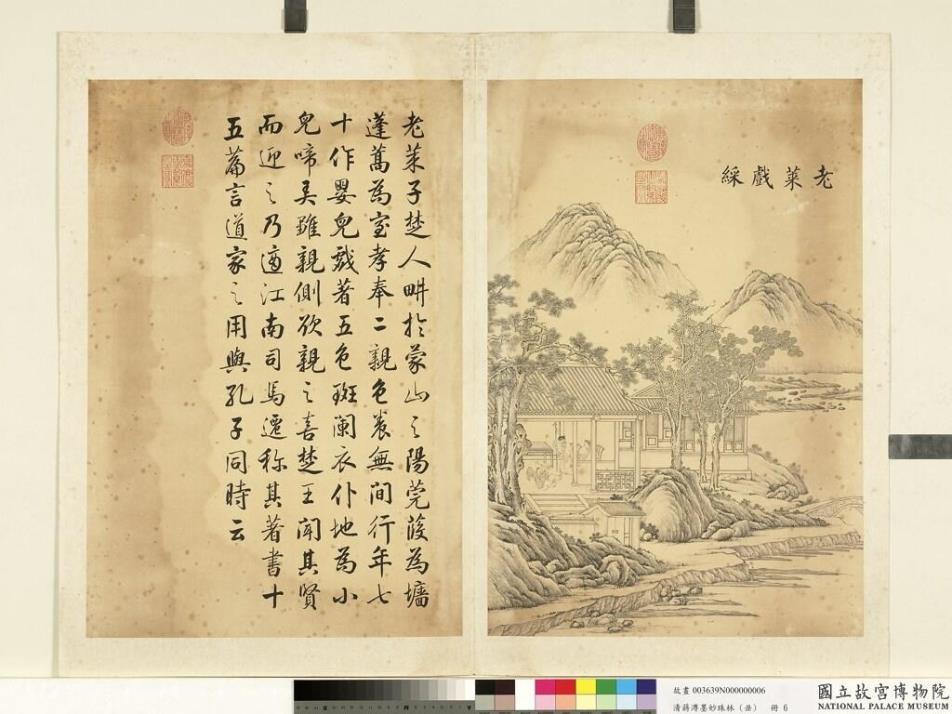 老萊戲綵
老萊子楚人畊於蒙山之陽莞葭為墻
蓬蒿為室孝奉二親色養無間行年七
十作嬰兒戲著五色斑闌衣仆地為小
兒啼弄雛親側欲親之喜楚王聞其賢
而迎之乃適江南司馬遷称其著書十
五篇言道家之用與孔子同時云
故畫 003639N000000006
清蔣溥墨妙珠林（丑） 冊 6
國立故宮博物院
NATIONAL PALACE MUSEUM